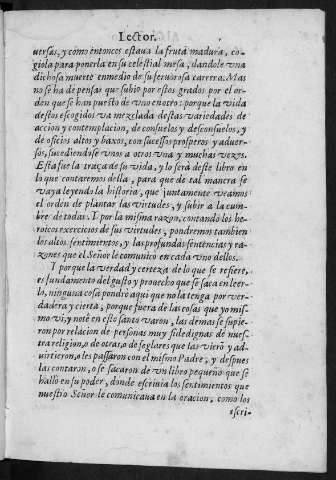 Lector.
uersas, y como entonces estaua la fruta madura, co-
giola para ponerla en su celestial mesa, dandole vna
dichosa muerte enmedio de su feruorosa carrera. Mas
no se ha de pensar que subio por estos grados por el or-
den que se han puesto de vno en otro: porque la vida
destos escogidos va mezclada destas variedades de
accion y contemplacion, de consuelos y desconsuelos, y
de oficios altos y baxos, con sucessos prosperos y aduer-
sos, sucediendose vnos a otros vna y muchas vezes.
Esta fue la traça de su vida, y lo será deste libro en
lo que contaremos della, para que de tal manera se
vaya leyendo la historia, que juntamente veamos
el orden de plantar las virtudes, y subir a la cum-
bre de todas. I por la misma razon, contando los he-
roicos exercicios de sus virtudes, pondremos tambien
los altos sentimientos, y las profundas sentencias y ra-
zones que el Señor le comunico en cada vno dellos.
Y porque la verdad y certeza de lo que se refiere,
es fundamento del gusto y prouecho que se saca en leer-
lo, ninguna cosa pondre aqui que no la tenga por ver-
dadera y cierta; porque fuera de las cosas que yo mis-
mo vi, y noté en esto santo varon, las demas se supie-
ron por relacion de personas muy fidedignas de nues-
tra religion, o de otras, o de seglares que las vierõ y ad-
uirtieron, o les passaron con el mismo Padre, y despues
las contaron, o se sacaron de vn libro pequeño que se
halló en su poder, donde escriuia los sentimientos que
nuestro Señor le comunicaua en la oracion, como los
escri-